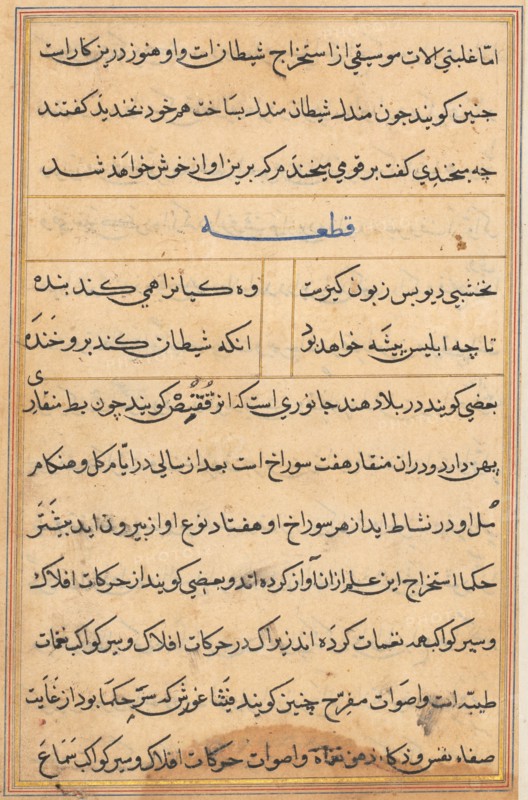 اما غلبتی الات موسیقی از استخراج شیطان است و او هنوز درین کار است
جنین کویند جون مندل شیطان مندل بساخت هم خود بخندید کفتند
چه میخندی کفت بر قومی میخندم که برین اواز خوش خواهند شد
قطعه
نخشبی دیو بس زبون کیرست
وه کیانرا همی کند بنده
تا چه ابلیس پیشه خواهد بود
انکه شیطان کند برو خنده
بعضی کویند در بلاد هند جانوری است که انرا ققنص کویند چون بط منقاری
پهن دارد و دران منقار هفت سوراخ است بعد از سالی در ایام کل و هنکام
مل او در نشاط اید از هر سوراخ او هفتاد نوع اواز بیرون اید بیشتر
حکما استخراج این علم ازان آواز کرده اند و بعضی کویند از حرکات افلاک
و سیر کواکب همه نغمات کرده اند زیراک در حرکات افلاک و سیر کواکب نغمات
طیبه است و اصوات مفرح چنین کویند فیثاغورش که سر حکما بود از غایت
صفاء نفس و ذکاء ذهن و اصوات حرکات افلاک و سیر کواکب سماع